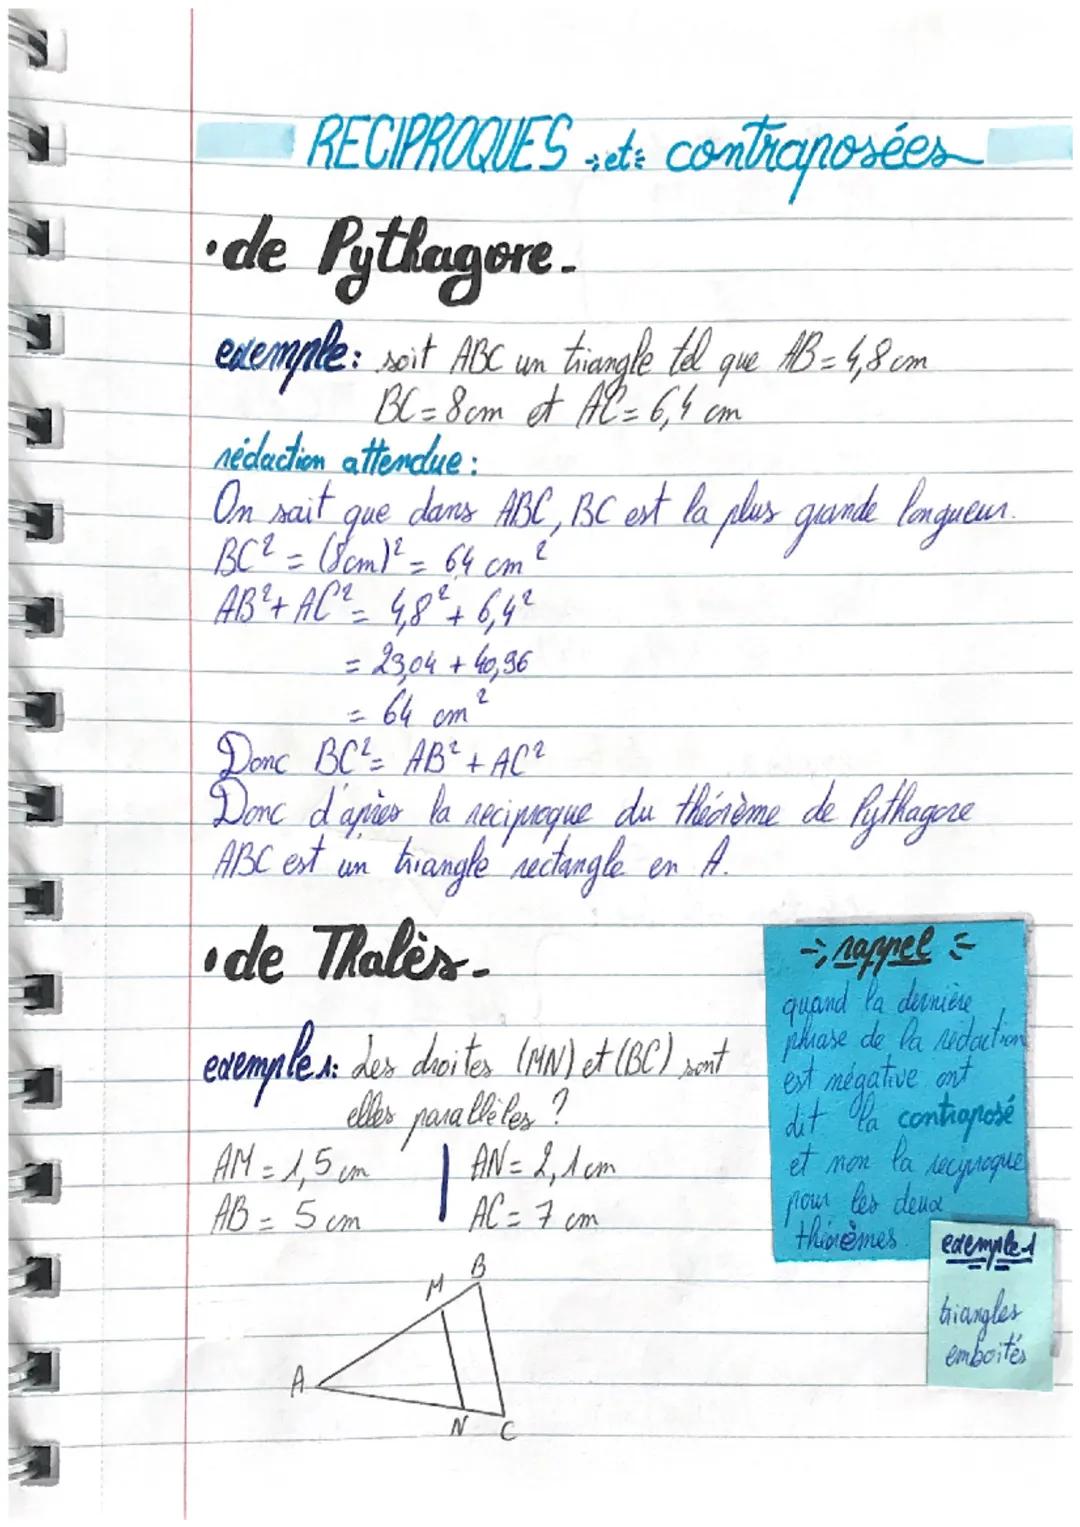 RECIPROQUES et contraposées
• de Pythagore.
exemple: soit ABC un triangle tel que AB = 4,8 cm
BC = 8cm et AC = 6,4 cm
rédaction attendue :
On sait que dans ABC, BC est la plus grande longueur.
BC² = (8cm)² = 64 cm²
AB² + AC² = 4,8² + 6,4²
= 23,04 + 40,96
= 64 cm²
Donc BC² = AB² + AC²
Donc d'après la reciproque du théorème de Pythagore
ABC est un triangle rectangle en A.
• de Thalès.
exemple 1: Les droites (MN) et (BC) sont
elles parallèles ?
AM = 1,5 cm | AN = 2,1 cm
AB = 5 cm | AC = 7 cm
B
M
A
N
C
rappel
quand la dernière
phrase de la rédaction
est négative ont
dit la contraposé
et non la recyproque
pour les deux
théorèmes.
exemple 1
triangles
emboités